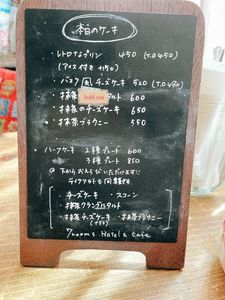 本日のケーキ
・レトロなプリン 450 (T.O 450)
(アイス付き +150)
・バスク風チーズケーキ 520 (T.O 490)
・抹茶 Sold out タルト 600
・抹茶のチーズケーキ 650
・抹茶ブラウニー 550
・ハーフケーキ 2種プレート 600
3種プレート 850
@ 下からおえらびいただけます!!
テイクアウトも同
・チーズケーキ ・スコーン
・抹茶クランブルタルト
・抹茶チーズケーキ ・抹茶ブラウニー
7rooms Hotel & Cafe